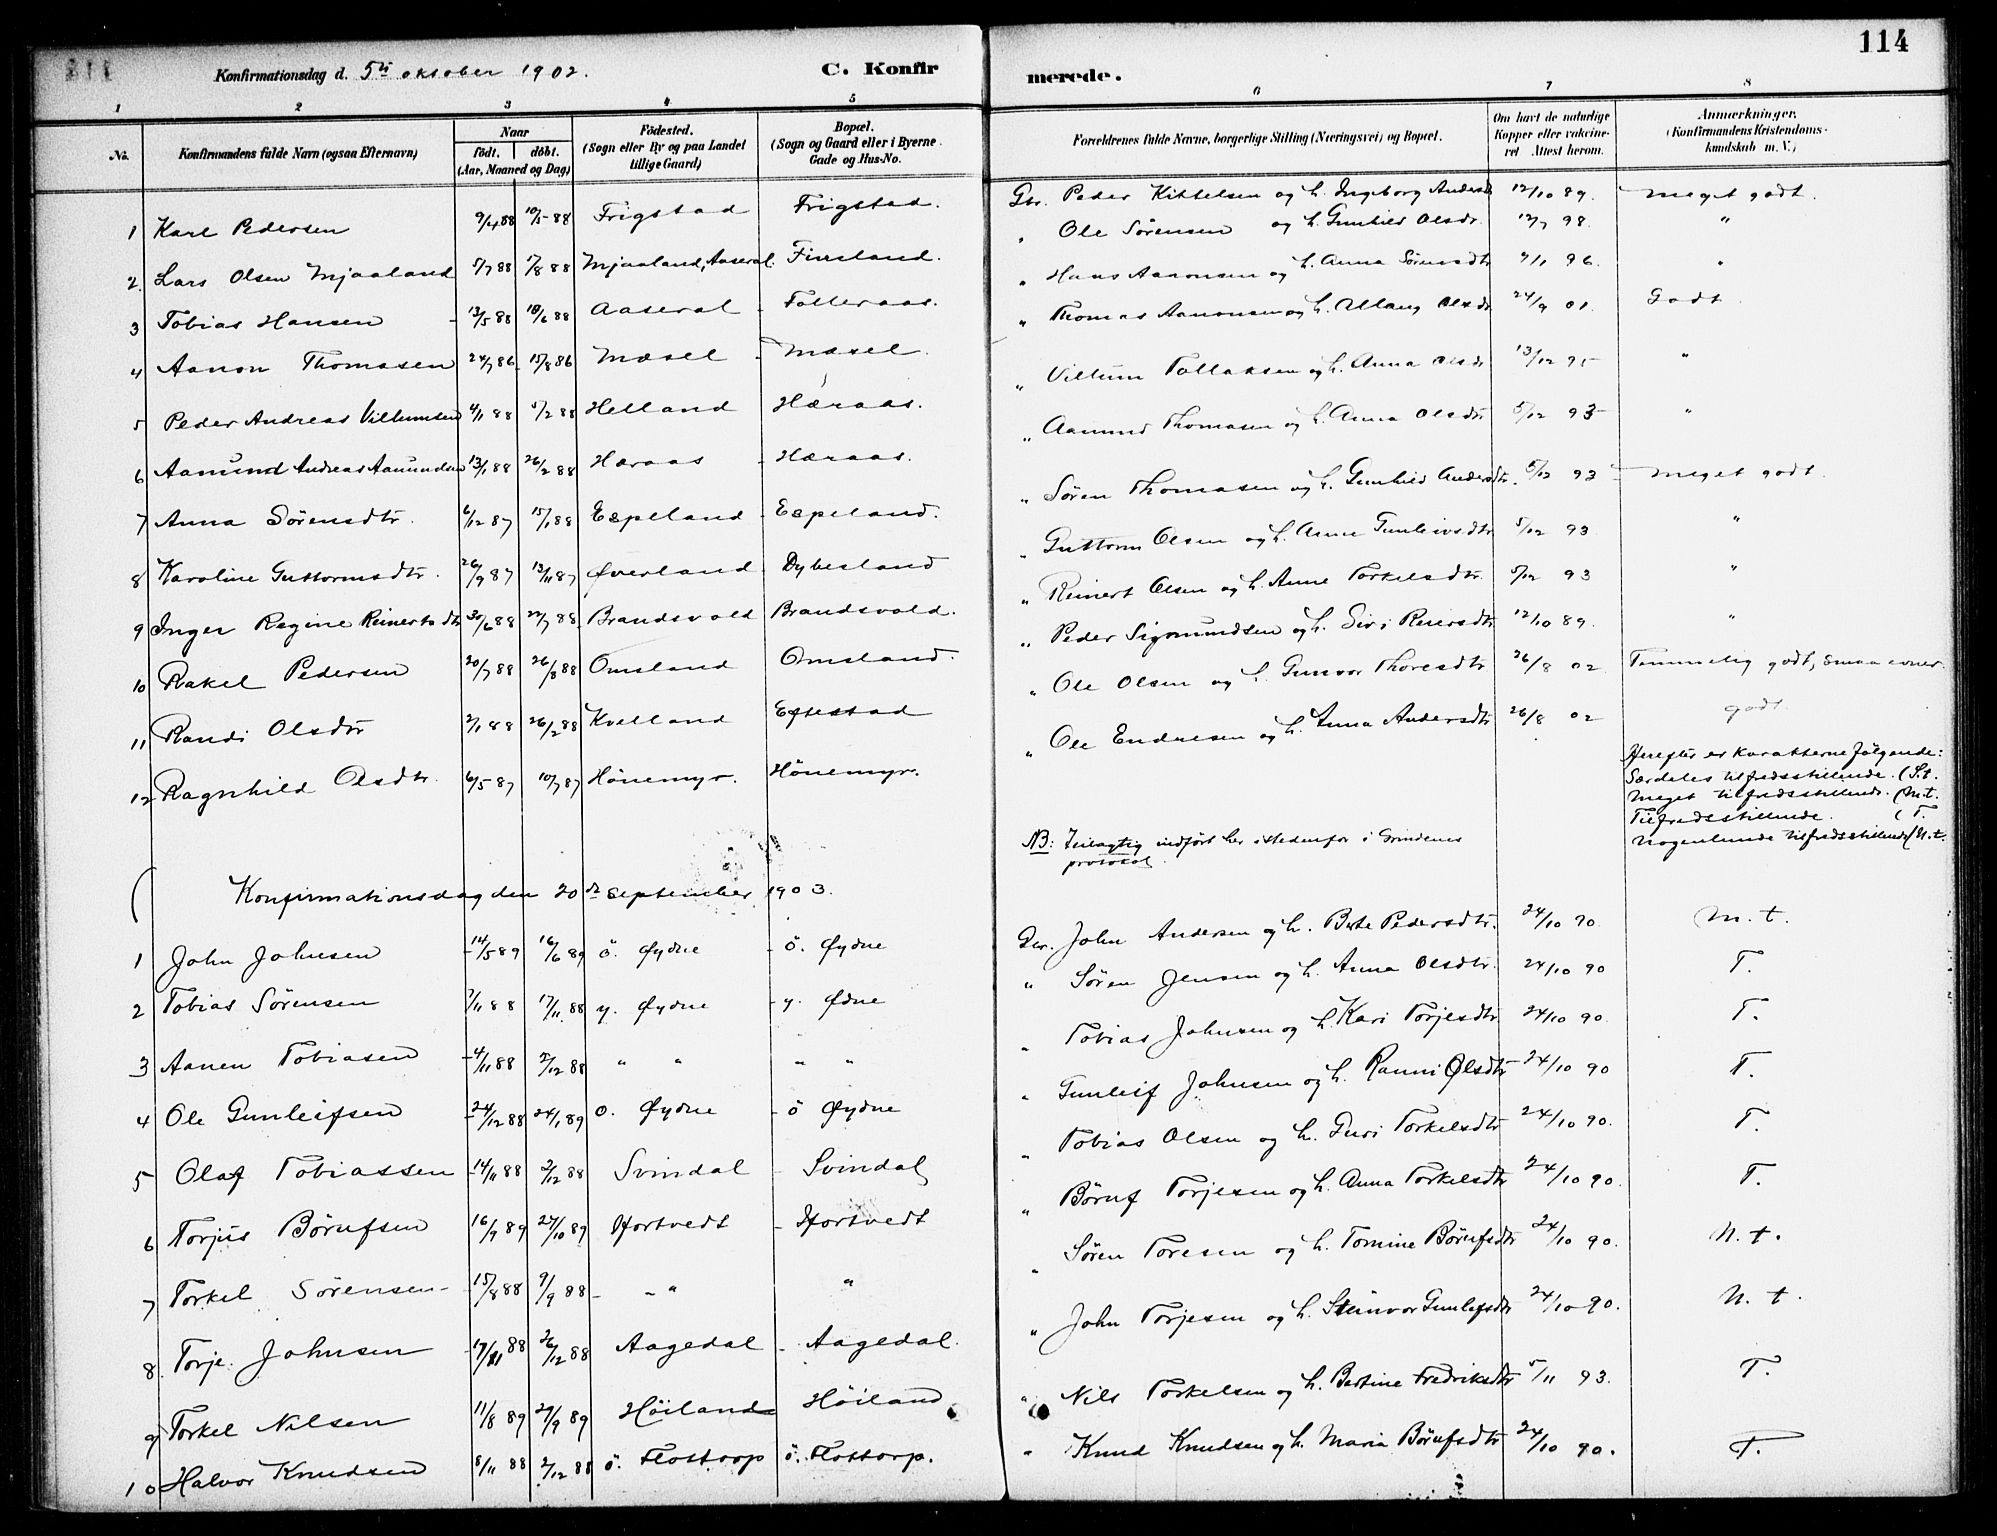 114
Konfirmationsdag d. 5te oktober 1902. C. Konfir merede.
1 2 3 4 5 6 7 8
No. Konfirmandens fulde Navn (ogsaa Efternavn) Naar födt. döbt. (Aar, Maaned og Dag) Födested. (Sogn eller By og paa Landet tillige Gaard) Bopæl. (Sogn og Gaard eller i Byerne Gade og Hus-No. Forældrenes fulde Navne, borgerlige Stilling (Næringsvei) og Bopæl. Om havt de naturlige Kopper eller vakcineret. Attest herom. Anmærkninger. (Konfirmandens Kristendomskundskab m. V.)
1 Karl Pedersen 9/4 88 10/5 88 Frigstad Frigstad. Gbr. Peder Kittelsen og h. Ingeborg Andersd 12/10 89. Meget godt.
2. Lars Olsen Mjaaland 5/7 88 17/8 88 Mjaaland, Aaseral. Finsland. " Ole Sörensen og h. Gunhild Olsdr. 12/7 98. "
3 Tobias Hansen 13/5 88 10/6 88 Aaseral Falleraas. " Hans Aanonsen og h. Anna Sörensdtr 9/1 96. "
4 Aanon Thomasen 24/7 86 15/8 86 Mæsel Mæsel. " Thomas Aanonsen og h. Allaug Olsdr 24/9 01. Godt
5 Peder Andreas Villumsen 4/1 88 5/2 88 Helland Hæraas. " Villum Tallaksen og h. Anna Olsdr 13/12 95 "
6 Aamund Andreas Aamundsen 13/1 88 26/2 88 Hæraas Hæraas. " Aamund Thomasen og h. Anna Olsdtr 5/12 93 "
7 Anna Sörensdtr. 6/12 87 15/1 88 Espeland Espeland. " Sören Thomasen og h. Gunhild Andersdtr. 5/12 93 Meget godt.
8 Karoline Guttormsdtr. 26/9 87 13/11 87 Øverland Dybesland " Guttorm Olsen og h. Anne Gunleivsdtr 5/12 93 "
9 Inger Regine Reinertsdtr 30/6 88 22/7 88 Brandsvold Brandsvold. " Reinert Olsen og h. Anne Torkelsdtr. 5/12 93 "
10 Rakel Pedersen 20/7 88 26/8 88 Omsland Omsland. " Peder Sigmundsen og h. Siri Reiersdtr 12/10 89. "
11 Randi Olsdtr 2/1 88 26/2 88 Kvelland Eftestad " Ole Olsen og h. Gunvor Thoresdtr 26/8 02 Temmelig godt, smaa evner.
12 Ragnhild Olsdtr. 6/5 87 10/7 87 Hönemyr. Hönemyr. " Ole Endresen og h. Anna Andersdtr 26/8 02 godt.
Herefter er karakterne følgende:
Særdeles tilfredsstillende. (S.t.
Meget tilfredsstillende. (M.t.
Tilfredsstillende. (T.
Nogenlunde tilfredsstillende (N.t.
NB: Feilagtig indført her istedenfor i Grindems
protokol.
Konfirmationsdag den 20de September 1903.
1 John Johnsen 14/5 89 16/6 89 ö. Øydne ö. Øydne Gbr. John Andersen og h. Berte Pedersdtr. 24/10 90. M. t.
2 Tobias Sörensen 7/11 88 17/11 88 y. Øydne y. Ødne " Sören Jensen og h. Anna Olsdtr. 24/10 90 T.
3 Aanen Tobiasen 4/11 88 2/12 88 " " " " " Tobias Johnsen og h. Kari Torjesdtr 24/10 90. T.
4 Ole Gunleifsen 24/12 88 24/1 89 ö. Øydne ö Øydne " Gunleif Johnsen og h. Ranni Olsdtr 24/10 90 T.
5 Olaf Tobiassen 14/11 88 2/12 88 Svindal Svindal " Tobias Olsen og h. Guri Torkelsdtr 24/10 90. T.
6 Torjus Börufsen 16/9 89 27/10 89 Hortvedt Hortvedt " Böruf Torjesen og h. Anna Torkelsdtr 24/10 90. T.
7 Torkel Sörensen 15/8 88 9/9 88 " " " " Sören Toresen og h. Tomine Börufsdtr 24/10 90. N. t.
8 Torje Johnsen 17/11 88 26/12 88 Aagedal Aagedal. " John Torjesen og h. Steinvor Gunlefsdtr 24/10 90. N. t.
9 Torkel Nilsen 11/8 89 29/9 89 Höiland Höiland " Nils Torkelsen og h. Bertine Fredriksdtr 5/11 93. T.
10 Halvor Knudsen 8/11 88 2/12 88 ö. Flottorp ö. Flottorp. " Knud Knudsen og h. Maria Börufsdtr 24/10 90. T.